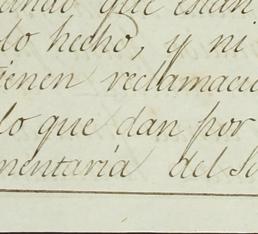 ando que están
lo hecho, y ni
tienen reclamació
lo que dan por
mentaria del Se